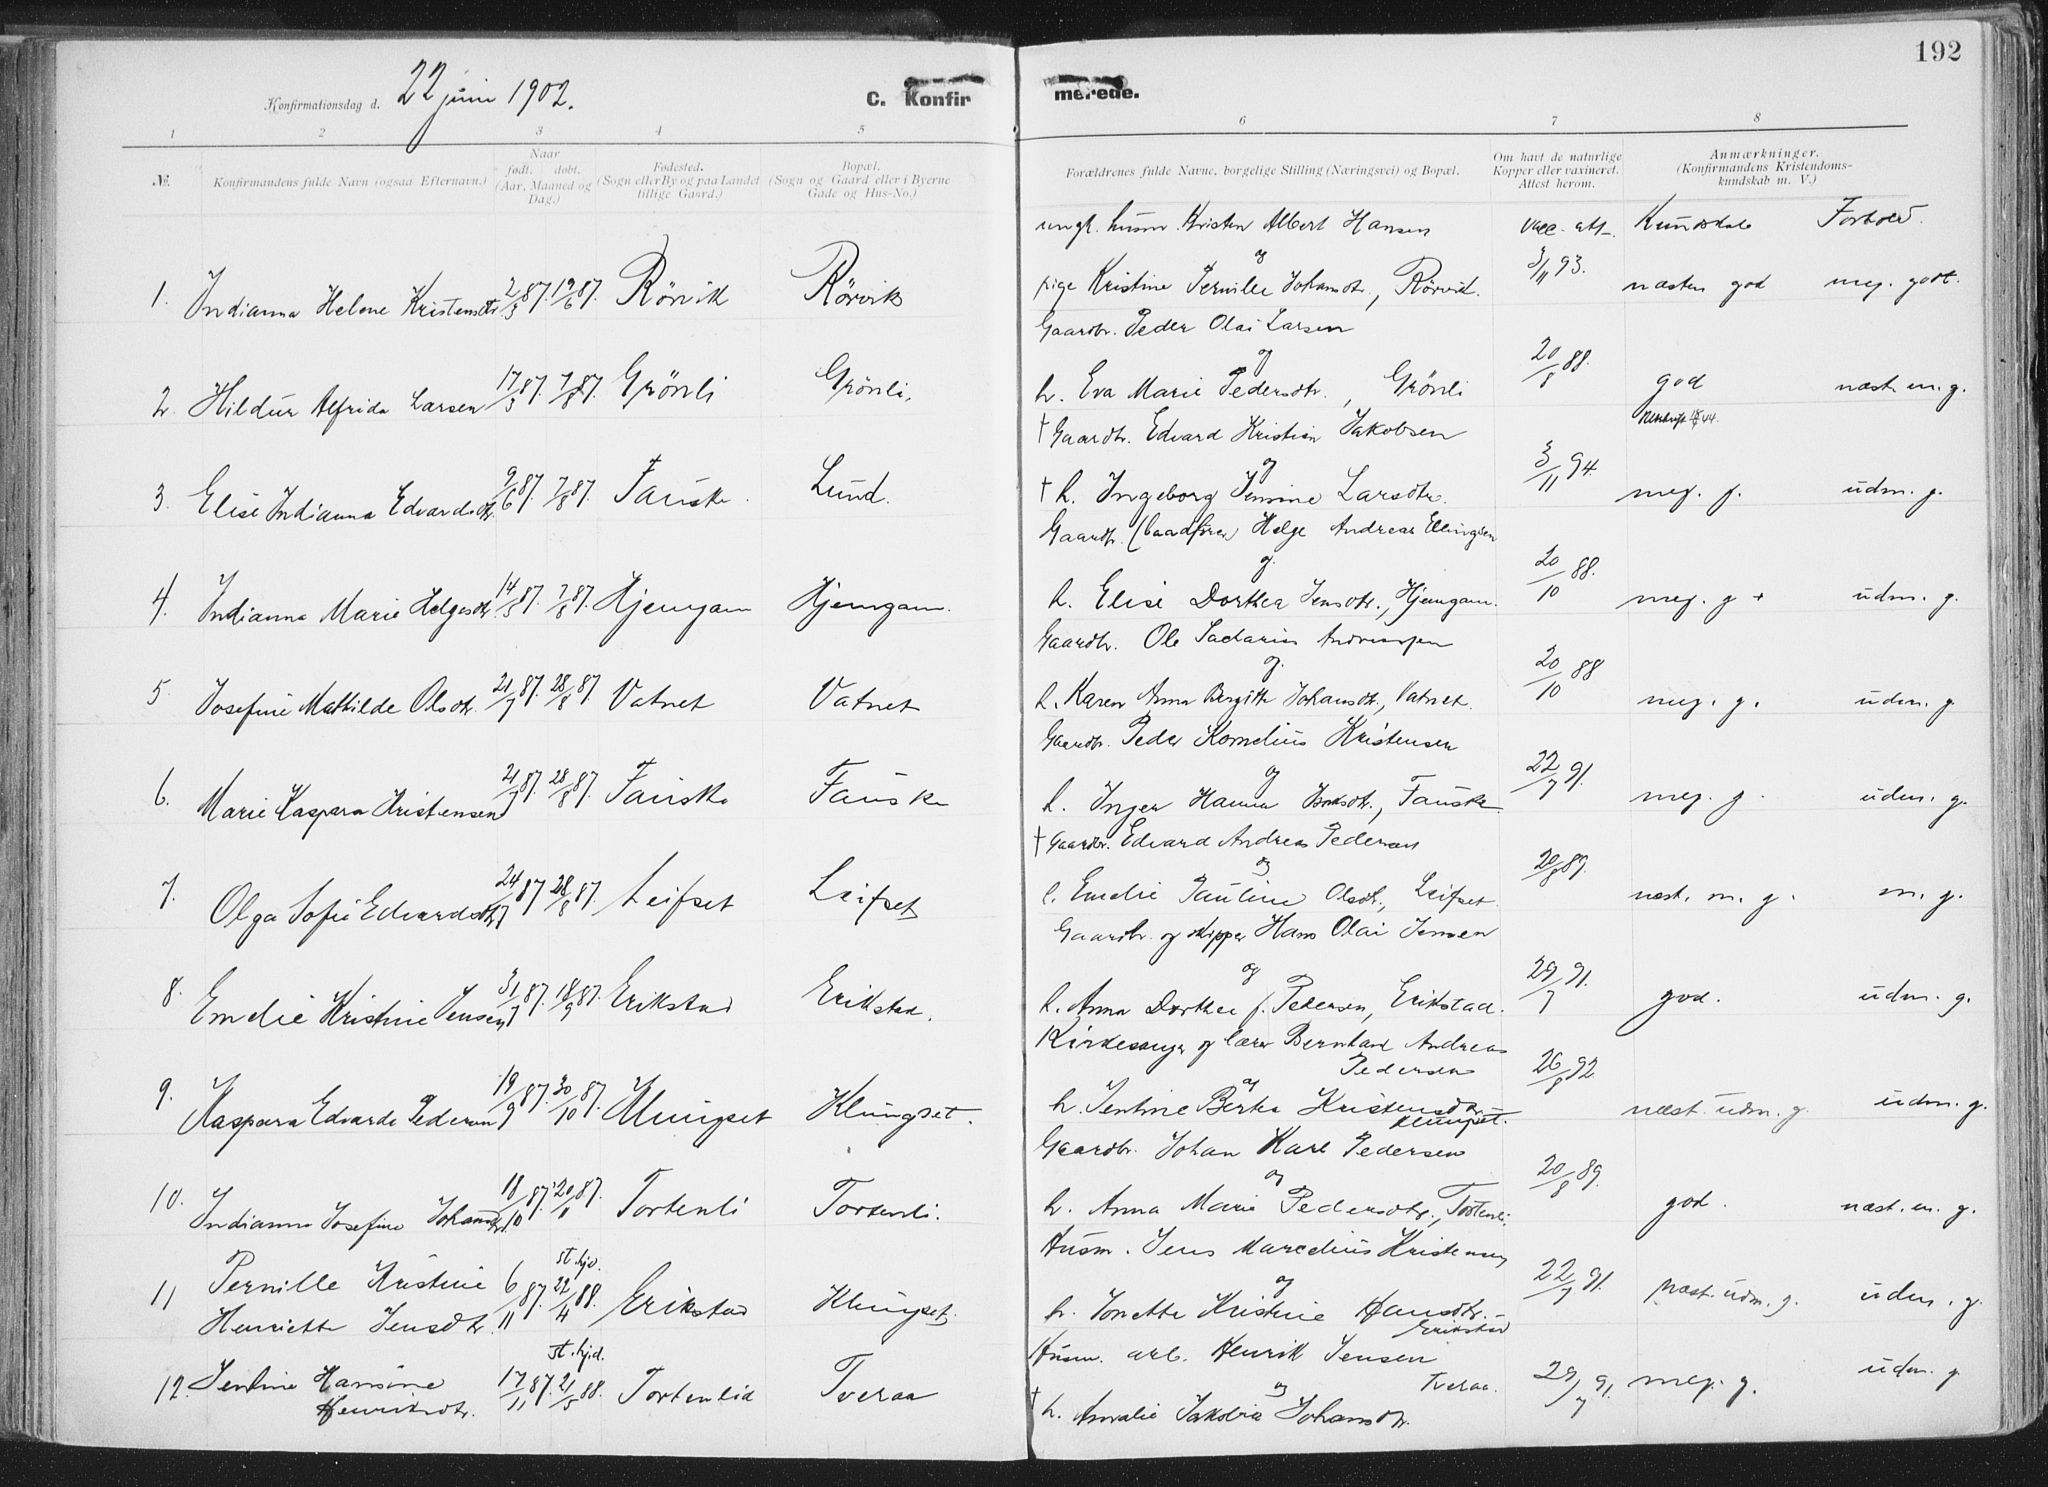 192
Konfirmationsdag d. 22 juni 1902.
C. Konfir merede.
1 2 3 4 5 6 7 8
№. Konfirmandens fulde Navn (ogsaa Efternavn.) Naar født. døbt. (Aar, Maaned og Dag.) Fødested. (Sogn eller By og paa Landet tillige Gaard.) Bopæl. (Sogn og Gaard eller i Byerne Gade og Hus-No.) Forældrenes fulde Navne, borgelige Stilling (Næringsvei) og Bopæl. Om havt de naturlige Kopper eller vaxineret. Attest herom. Anmærkninger. (Konfirmandens Kristendomskundskab m. V.)
ungk. husm. Kristen Albert Hansen vacc. att. Kundskab Forhold.
og
1. Indianna Helene Kristensdtr. 2/3 87. 19/6 87. Rönvik Rörvik pige Kristine Pernille Johansdtr., Rörvik. 3/11 93. næsten god meg. godt.
Gaardbr. Peder Olai Larsen
og
2. Hildur Alfrida Larsen 17/3 87. 7/8 87. Grönli Grönli. h. Eva Marie Pedersdtr., Grönli 20/8 88. god næst m. g.
† Gaardbr. Edvard Kristian Jakobsen
og
3. Elise Indianna Edvardsdtr. 9/6 87. 7/8 87. Fauske. Lund. † h. Ingeborg Jensine Larsdtr. 3/11 94. meg. g. udm. g.
Gaardbr. (baadfører) Helge Andreas Ellingsen
og
4. Indianna Marie Helgesdtr. 14/5 87. 7/8 87. Hjemgam Hjemgam. h. Elise Dorthea Jensdtr., Hjemgam. 20/10 88. meg. g + udm. g.
Gaardbr. Ole Sacharias Andreassen
og
5. Josefine Mathilde Olsdtr. 21/7 87. 28/8 87. Vatnet Vatnet h. Karen Anna Bergitte Johansdtr., Vatnet. 20/10 88 meg. g. udm. g
Gaardbr. Peder Kornelius Kristensen
og
6. Marie Kaspara Kristensen 21/7 87. 28/8 87. Fauske Fauske h. Inger Hanna Isaksdtr., Fauske 22/7 91. meg. g. udm. g.
† Gaardbr. Edvard Andreas Pedersen
og
7. Olga Sofie Edvardsdtr. 24/7 87 28/8 87. Leifset Leifset h. Emelie Pauline Olsdtr., Leifset. 20/8 89. næst. m. g. m. g.
Gaardbr. og skipper Hans Olai Jensen
og
8. Emelie Kristine Jensen 31/7 87. 18/9 87. Erikstad Erikstad. h. Anna Dorthea f. Pedersen, Erikstad. 29/7 91. god. udm. g.
Kirkesanger og lærer Bernhard Andreas
Pedersen
og
9. Kaspara Edvarda Pedersen 19/9 87. 30/10 87. Klungset Klungset. h. Jentine Berta Kristensdtr. 26/8 92. næst udm. g. udm. g.
Klungset.
Gaardbr. Johan Karl Pedersen
og
10. Indianna Josefine Johansdtr. 18/10 87. 20/11 87. Tortenli Tortenli. h. Anna Marie Pedersdtr., Tortenli. 20/8 89. god. næst. m. g.
Husm. Jens Marcelius Kristensen
og
11 Pernille Kristine
Henriette Jensdtr. 6/11 87. st. hjd. 22/4 88. Erikstad Klungset. h. Jonette Kristine Hansdtr. 22/7 91. næst. udm. g. udm. g.
Erikstad
Husm. arb. Henrik Jensen
Tveraa.
og
12. Jentine Hansine
Henriksdtr. 17/11 87. st. hjd. 21/5 88. Tortenlid Tveraa † h. Amalie Jakobia Johansdtr. 29/7 91. meg. g. udm. g